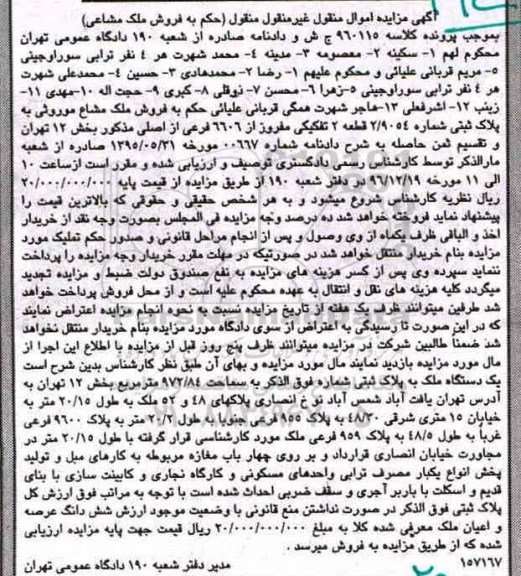 آگهی مزایده اموال منقول غیرمنقول منقول (حکم به فروش ملک مشاعی)
بموجب پرونده کلاسه ۹۶۰۱۱۵ ج ش و دادنامه صادره از شعبه ۱۹۰ دادگاه عمومی تهران
محکوم لهم ۱- سکینه ۲- معصومه ۳- مدینه ۴- محمد شهرت هر ۴ نفر ترابی سوراوجینی
۵- مریم قربانی علیائی و محکوم علیهم ۱- رضا ۲- محمدهادی ۳- حسین ۴- محمدعلی شهرت
هر ۴ نفر ترابی سوراوجینی ۵-زهرا ۶-محسن ۷- ذوقلی ۸- کبری ۹- حجت اله ۱۰-مهدی ۱۱-
زینب ۱۲- اشرفعلی ۱۳-هاجر شهرت همگی قربانی علیائی حکم به فروش ملک مشاع موروثی به
پلاک ثبتی شماره ۲/۹۰۵۴ قطعه ۲ تفکیکی مفروز از ۶۶۰۶ فرعی از اصلی مذکور بخش ۱۲ تهران
و تقسیم ثمن حاصله به شرح دادنامه شماره ۰۰۶۶۷ مورخه ۱۳۹۵/۰۵/۳۱ صادره از شعبه
مارالذکر توسط کارشناس رسمی دادگستری توصیف و ارزیابی شده و مقرر است ازساعت ۱۰
الی ۱۱ مورخه ۹۶/۱۲/۱۹ در دفتر شعبه ۱۹۰ از طریق مزایده از قیمت پایه ۲۰/۰۰۰/۰۰۰/۰۰۰
ریال نظریه کارشناس شروع میشود و به هر شخص حقیقی و حقوقی که بالاترین قیمت را
پیشنهاد نماید فروخته خواهد شد ده درصد وجه مزایده فی المجلس بصورت وجه نقد از خریدار
اخذ و الباقی ظرف یکماه از وی وصول و پس از انجام مراحل قانونی و صدور حکم تملیک مورد
مزایده بنام خریدار منتقل خواهد شد در صورتیکه در مهلت مقرر خریدار وجه مزایده را پرداخت
ننماید سپرده وی پس از کسر هزینه های مزایده به نفع صندوق دولت ضبط و مزایده تجدید
میگردد کلیه هزینه های نقل و انتقال به عهده محکوم علیه است و از محل فروش پرداخت خواهد
شد طرفین میتوانند ظرف یک هفته از تاریخ مزایده نسبت به نحوه انجام مزایده اعتراض نمایند
که در این صورت تا رسیدگی به اعتراض از سوی دادگاه مورد مزایده بنام خریدار منتقل نخواهد
شد ضمناً طالبین شرکت در مزایده میتوانند ظرف پنج روز قبل از مزایده با اطلاع این اجرا از
مال مورد مزایده بازدید نمایند مال مورد مزایده و بهای آن طبق نظر کارشناس بدین شرح است
یک دستگاه ملک به پلاک ثبتی شماره فوق الذکر به مساحت ۹۷۲/۸۴ مترمربع بخش ۱۲ تهران به
آدرس تهران یافت آباد شمس آباد نو خ انصاری پلاکهای ۴۸ و ۵۲ ملک به طول ۲۰/۱۵ متر به
خیابان ۱۵ متری شرقی ۴۸/۳۰ به پلاک ۹۵۵ فرعی جنوبا به طول ۲۰/۲ متر به پلاک ۹۶۰۰ فرعی
غرباً به طول ۴۸/۵ به پلاک ۹۵۹ فرعی ملک مورد کارشناسی قرار گرفته با طول ۲۰/۱۵ متر در
مجاورت خیابان انصاری قرارداد و بر روی چهار باب مغازه مربوطه به کارهای مبل و تولید
پخش انواع یکبار مصرف ترابی واحدهای مسکونی و کارگاه نجاری و کابینت سازی با بنای
قدیم و اسکلت با باربر آجری و سقف ضربی احداث شده است با توجه به مراتب فوق ارزش کل
پلاک ثبتی فوق الذکر در صورت نداشتن منع قانونی با وضعیت موجود ارزش شش دانگ عرصه
و اعیان ملک معرفی شده کلا به مبلغ ۲۰/۰۰۰/۰۰۰/۰۰۰ ریال قیمت جهت پایه مزایده ارزیابی
شده که از طریق مزایده به فروش میرسد .
۱۵۷۱۶۷ مدیر دفتر شعبه ۱۹۰ دادگاه عمومی تهران